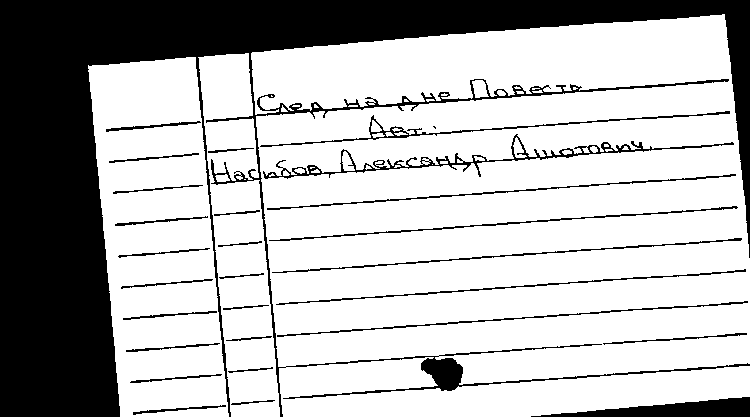 След на дне Повесть
Авт.:
Насибов, Александр Ашотович.